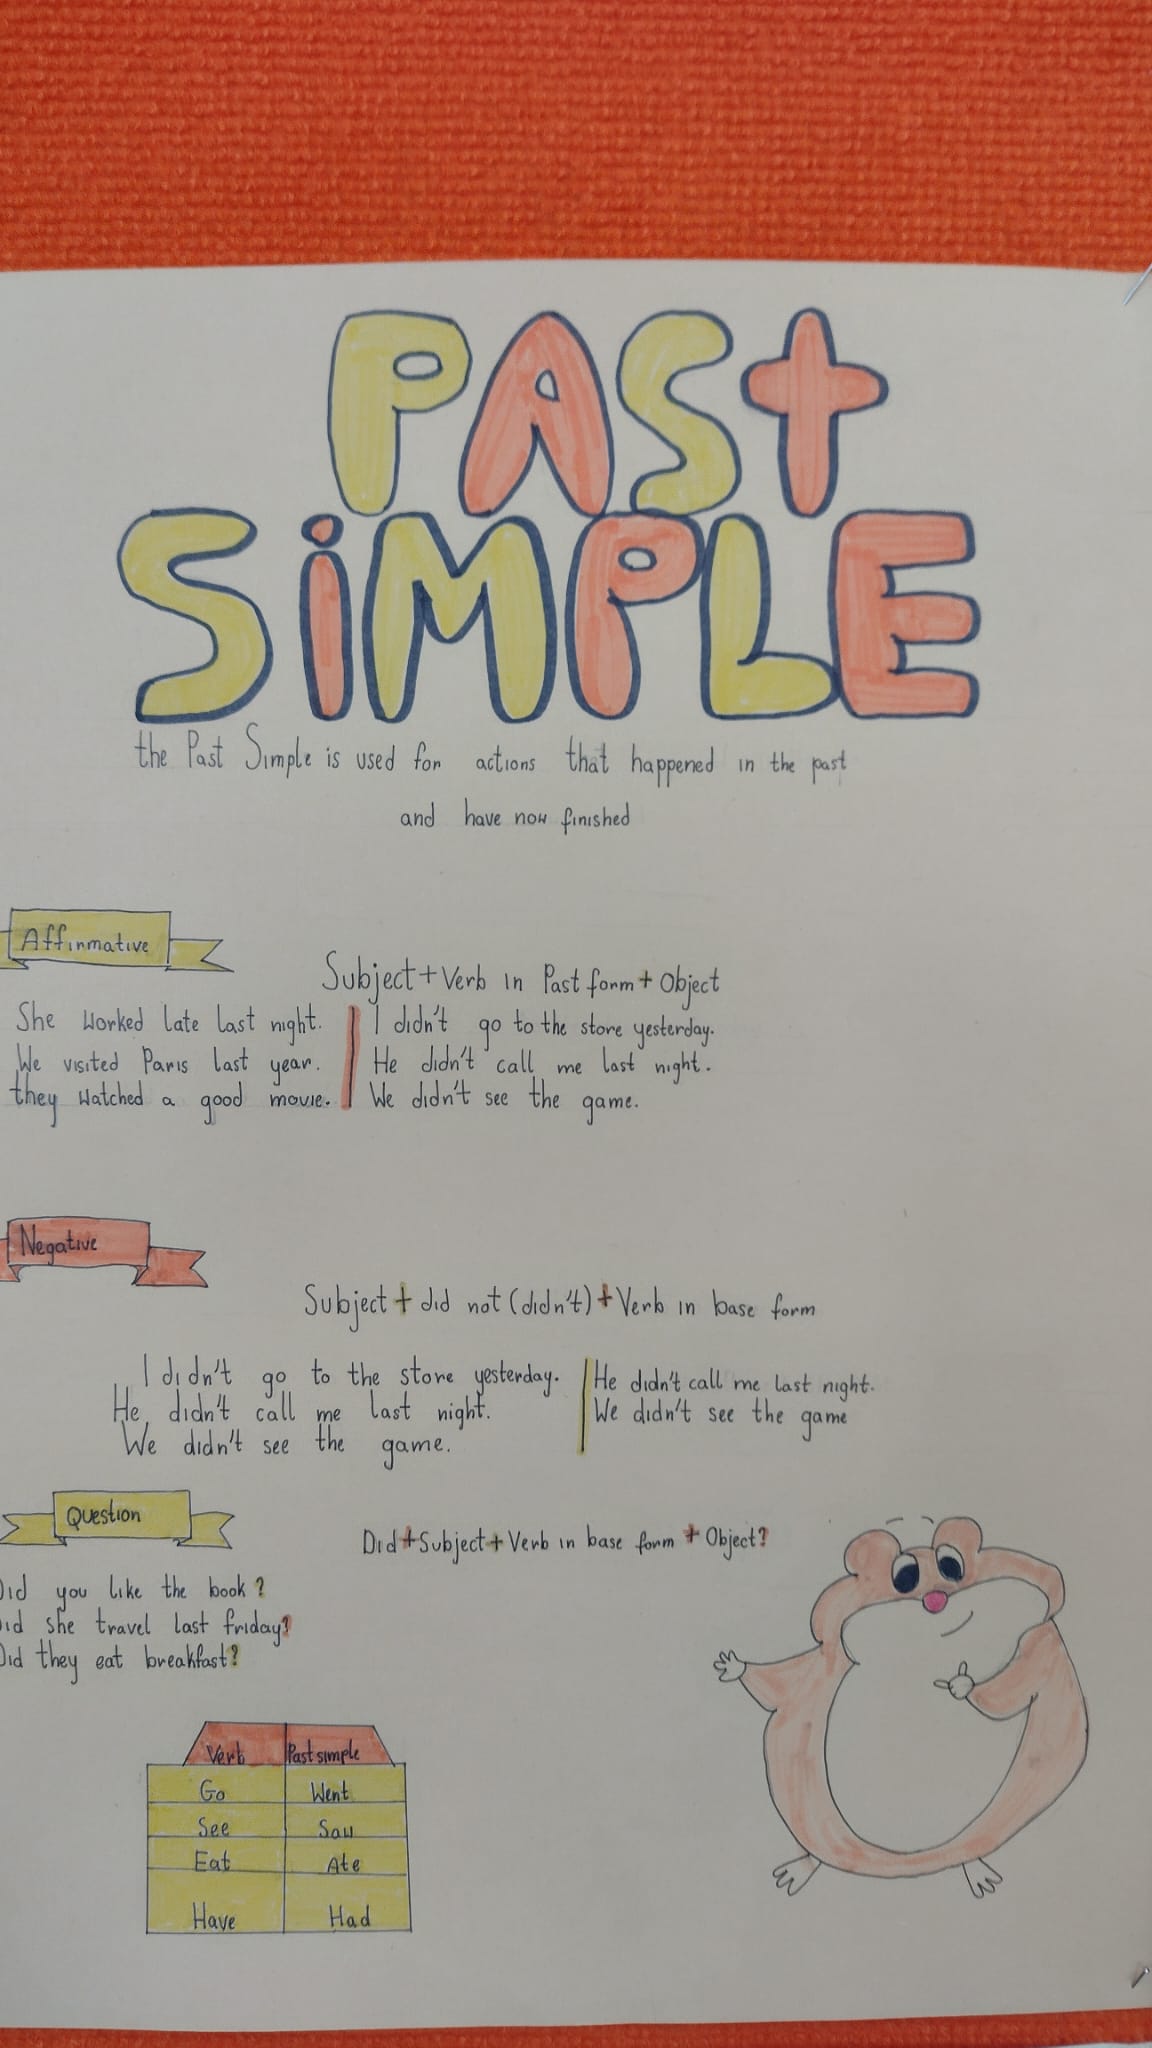 PASt
SiMPLE
the Past Simple is used for actions that happened in the past
and have now finished
Affirmative
Subject + Verb in Past form + Object
She worked late last night.
We visited Paris last year.
they watched a good movie.
I didn't go to the store yesterday.
He didn't call me last night.
We didn't see the game.
Negative
Subject + did not (didn't) + Verb in base form
I didn't go to the store yesterday.
He didn't call me last night.
We didn't see the game.
He didn't call me last night.
We didn't see the game
Question
Did + Subject + Verb in base form + Object?
Did you like the book?
Did she travel last friday?
Did they eat breakfast?
Verb Past simple
Go Went
See Saw
Eat Ate
Have Had